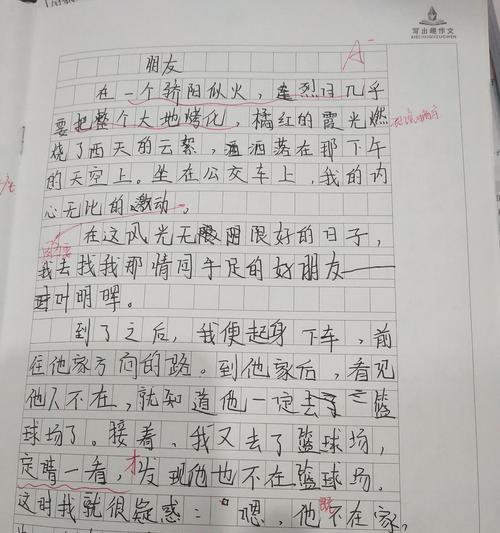 写出趣作文
XIECHUQUZUOWEN
A-
朋友
在一个骄阳似火，烈日几乎
要把整个大地烤化，橘红的霞光燃
烧了西天的云絮，洒落在那下午
的天空上。坐在公交车上，我的内
心无比的激动。
在这风光无限好的日子，
我去找我那情同手足的好朋友——
叶明晖。
到了之后，我便起身下车，前
往他家方向的路。到他家后，看见
他人不在，就知道他一定去了篮
球场了。接着，我又去了篮球场，
定睛一看，才发现他也不在篮球场。
这时我就很疑惑：“嗯，他既不在家，